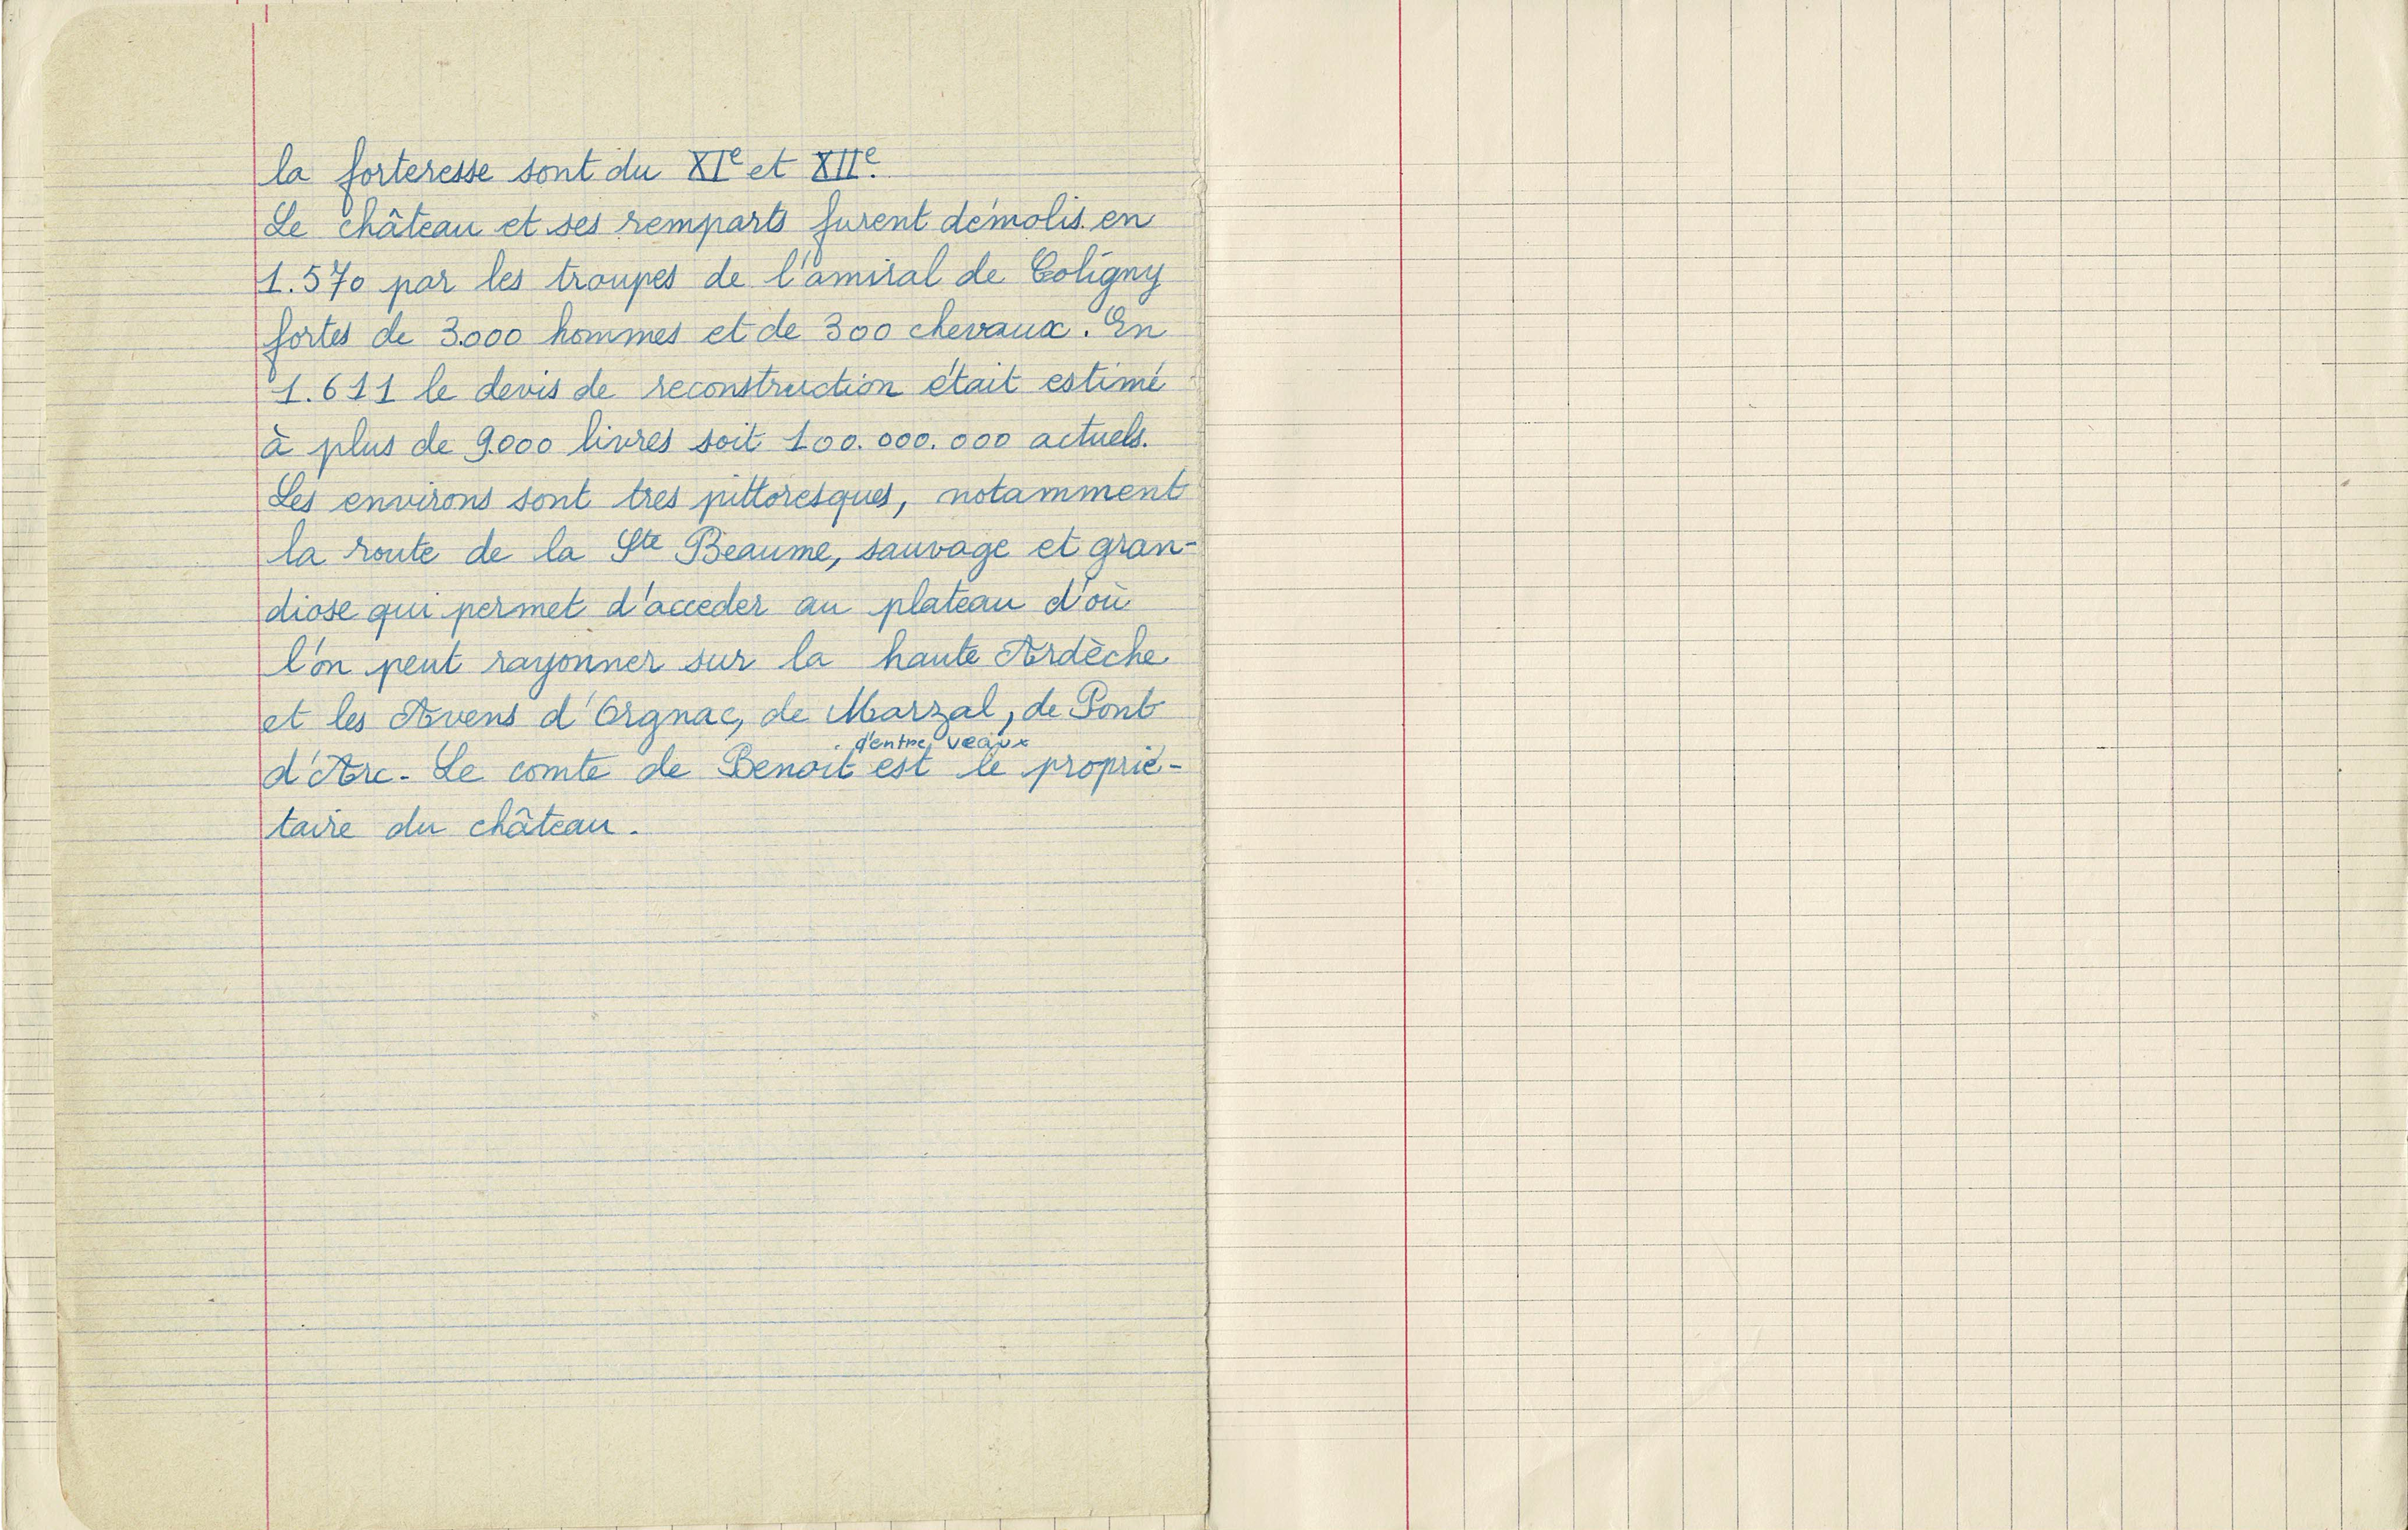 la forteresse sont du XIe et XIIe.
Le château et ses remparts furent démolis en
1.570 par les troupes de l'amiral de Coligny
fortes de 3.000 hommes et de 300 chevaux. En
1.611 le devis de reconstruction était estimé
à plus de 9.000 livres soit 100.000.000 actuels.
Les environs sont tres pittoresques, notamment
la route de la Ste Beaume, sauvage et gran-
diose qui permet d'acceder au plateau d'où
l'on peut rayonner sur la haute Ardèche
et les Avens d'Orgnac, de Marzal, de Pont
d'entre veaux
d'Arc - Le comte de Benoit est le proprié-
taire du château.